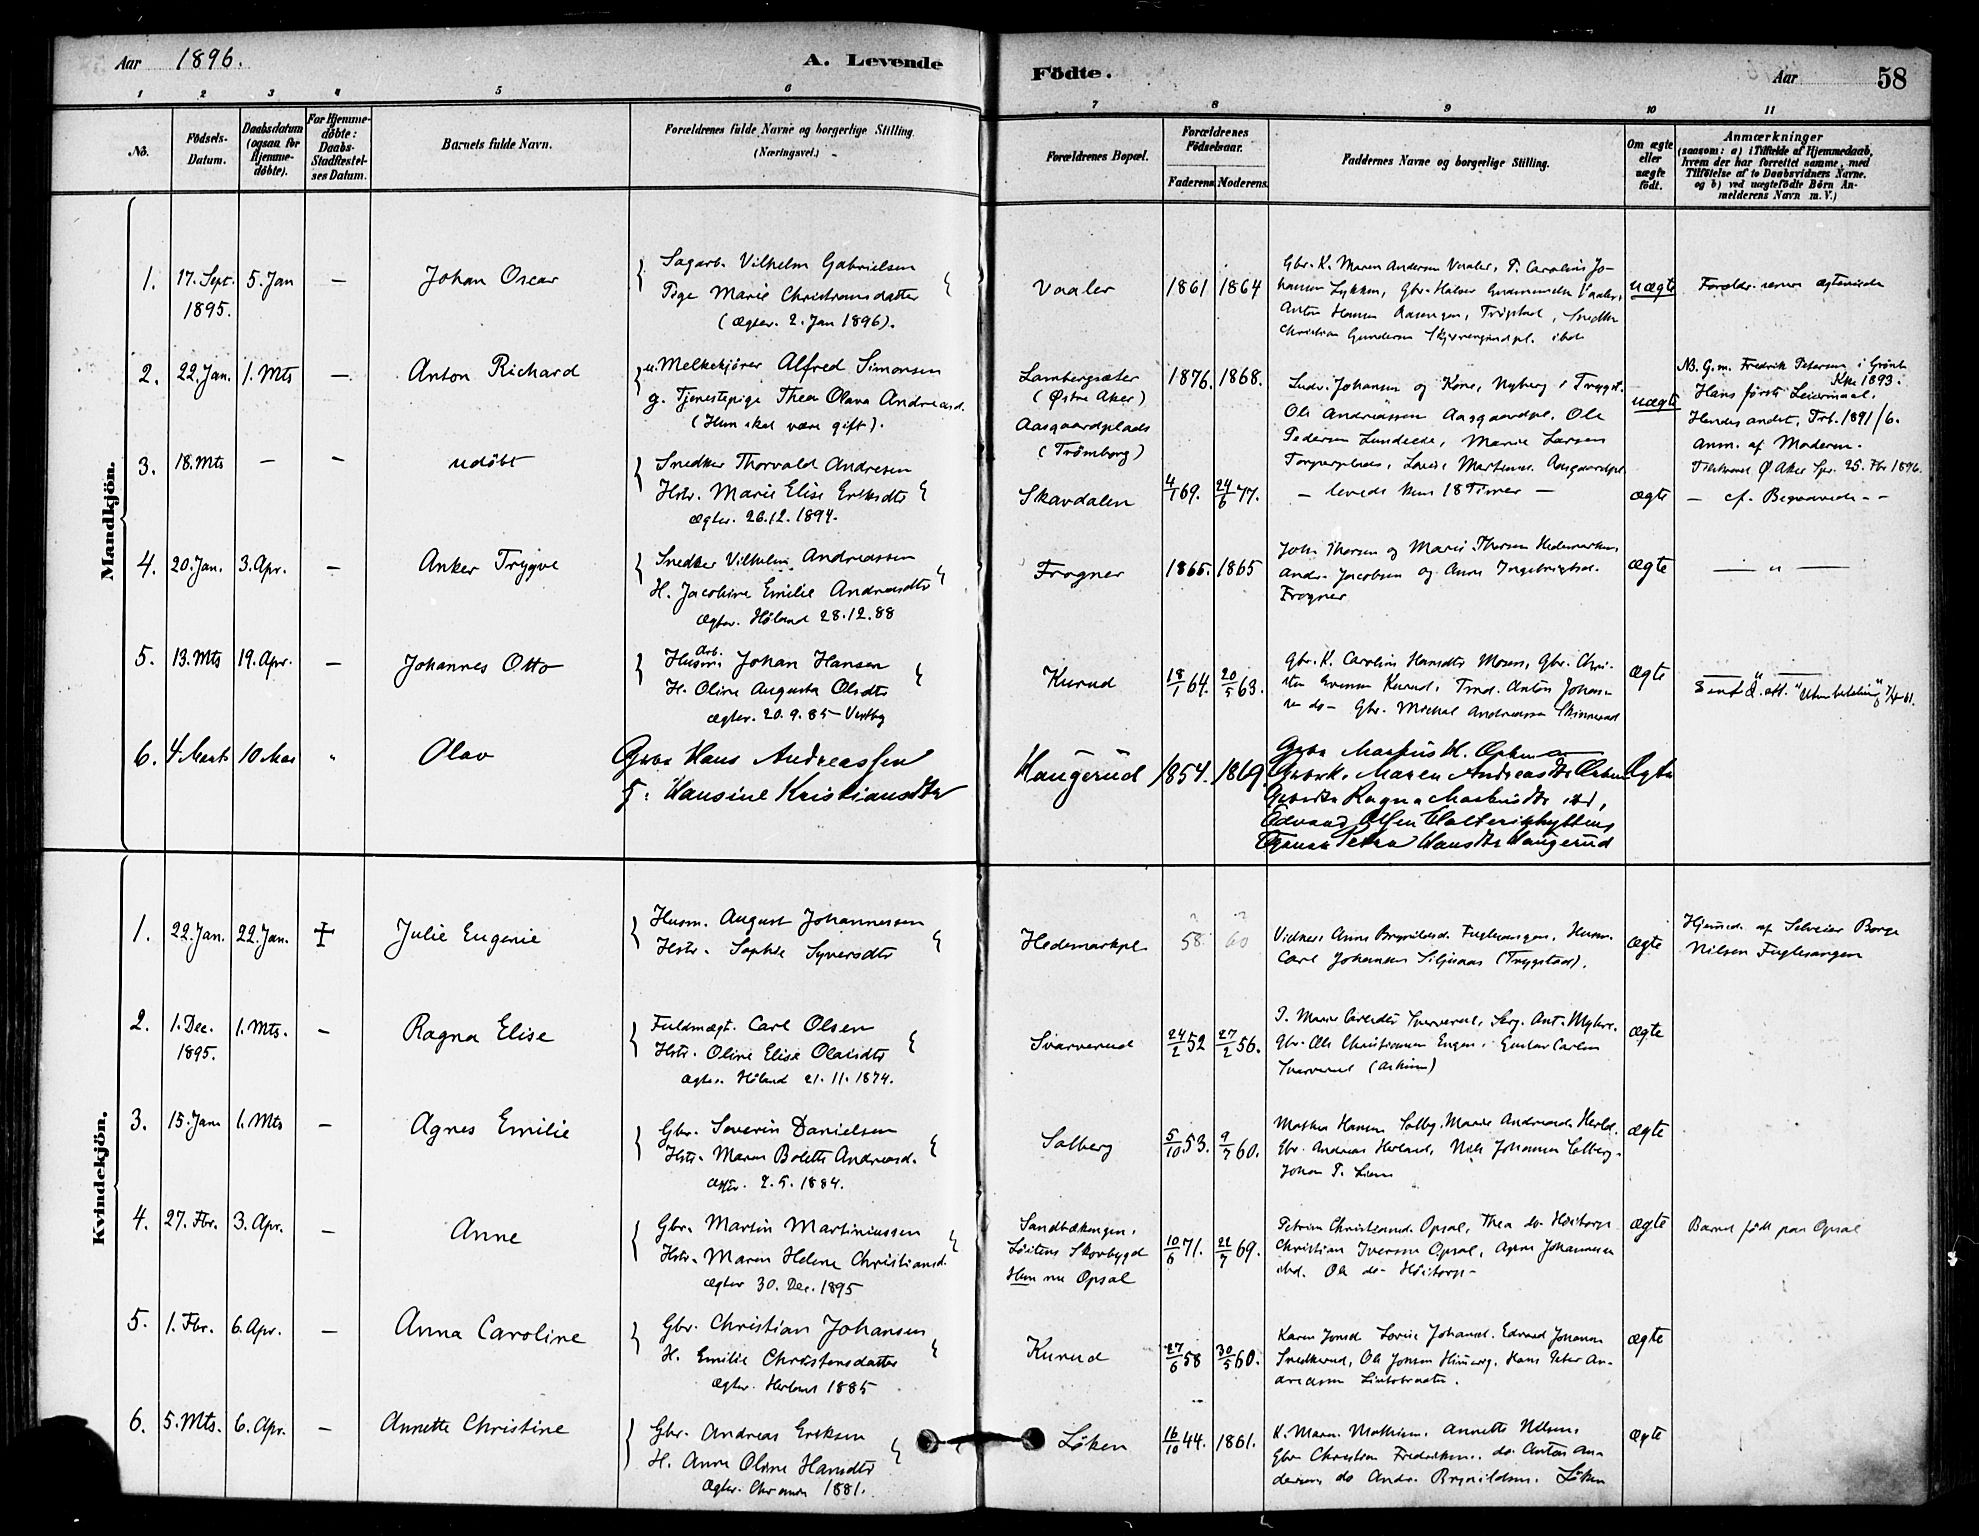 Aar 1896.
A. Levende
Födte.
Aar
58
1 2 3 4 5 6 7 8 9 10 11
No.
Födsels-
Datum.
Daabsdatum
(ogsaa for
Hjemme-
döbte).
For Hjemme-
döbte:
Daabs-
Stadfæstel-
ses Datum.
Barnets fulde Navn.
Forældrenes fulde Navne og borgerlige Stilling.
(Næringsvei.)
Forældrenes Bopæl.
Forældrenes
Födselsaar.
Faderens. Moderens.
Faddernes Navne og borgerlige Stilling.
Om ægte
eller
uægte
födt.
Anmærkninger
(saasom: a) i Tilfælde af Hjemmedaab,
hvem der har forrettet samme, med
Tilföielse af to Daabsvidners Navne.
og b) ved uægtefödte Börn An-
melderens Navn m. V.)
Mandkjön.
1. 17. Sept. 1895. 5. Jan — Johan Oscar
Sagarb. Vilhelm Gabrielsen
Pige Marie Christiansdatter
(Ægtev. 2. Jan 1896).
Vaaler 1861 1864
Gbr. K. Maren Andersen Vaaler, P. Caroline Jo-
hansen Lykken, Gbr. Halvor Gudmundsen Vaaler,
Anton Hansen Aasengen, Trögstad, Snedker
Christian Gundersen
uægte
2. 22. Jan. 1. Mts — Anton Richard
u. Melkekjörer Alfred Simonsen
g. Tjenestepige Thea Olava Andreasd.
(Hun skal være gift).
Lambergsæter
(Østre Aker)
Aasgaardplads
(Trömborg)
1876. 1868.
Ludv. Johansen og Kone, Nyberg i Trygst.
Ole Andreassen Aasgaardpl. Ole
Pedersen Lundeede, Marie Larsen
Torperplads, Lovise Martinsd. Aasgaardpl.
uægte
NB. G. m. Fredrik Petersen i Grönl.
Kke 1893.
Hans første Leiermaal.
Hendes andet, Frb. 1891/6.
Anm. af Moderen.
Ø. Aker Spr. 25. Fbr 1896.
3. 18. Mts — — udöbt
Snedker Thorvald Andresen
Hstr. Marie Elise Eriksdtr
Ægtev. 26.12.1894.
Skavdalen 4/1 69. 24/6 77.
— levede kun 18 Timer —
ægte — cf. Begravede - -
4. 20. Jan. 3. Apr. — Anker Trygve
Snedker Vilhelm Andreassen
H. Jacobine Emilie Andreasdtr
Ægtev. Höland 28.12.88
Frogner 1865. 1865
John Thorsen og Marie Thorsen Hedemarken,
Andr. Jacobsen og Anne Ingebrigtsd.
Frogner
ægte — " —
5. 13. Mts 19. Apr. — Johannes Otto
Arb.
Husm. Johan Hansen
H. Oline Augusta Olsdtr
Ægtev. 20.9.85 - Vestby
Kurud 18/1 64. 20/5 63.
Gbr. K. Caroline Hansdtr Mosen, Gbr. Chri-
sten Evensen Kurud, Tmd. Anton Johan-
sen do - Gbr. Michael Andreassen Skinnerud
ægte
6. 4. Marts 10 Mai " Olav
Gbr. Hans Andreassen
H. Hansine Kristiansdtr
Haugerud 1854. 1869.
Gbr. Markus H.
Gbrk. Maren Andreasdtr
Gbrdtr Ragna Markusdtr ibd,
Edvard Olsen
Petra Hansdtr Haugerud
Ægte
Kvindekjön.
1. 22. Jan. 22. Jan. + Julie Eugenie
Husm. August Johannessen
Hstr. Sophie Syversdtr
Hedemarkpl. 58. 60
Vidner: Anne Brynildsd. Fuglesangen, Husm.
Carl Johansen Siljuaas (Trygstad).
ægte
Hjemmed. af Selveier Borge
Nilsen Fuglesangen
2. 1. Dec. 1895. 1. Mts. — Ragna Elise
Fuldmægt. Carl Olsen
Hstr. Oline Elise Olausdtr
Ægtev. Höland 21.11.1874.
Svarverud 24/2 52 27/2 56.
P. Marie Carlsdtr Svarverud, Serg. Ant. Myhre,
Gbr. Ole Christiansen Engen, Gustav Carlsen
Svarverud (Askim)
ægte
3. 15. Jan 1. Mts — Agnes Emilie
Gbr. Severin Danielsen
Hstr. Maren Bolette Andreasd.
Ægtev. 2.5.1884.
Solberg 5/10 53. 9/7 60.
Mathea Hansen Solbg. Marie Andreasd. Herld.
Gbr. Andreas Herland, Nils Johannes Solberg.
Johan P. Lien
ægte
4. 27. Fbr. 3. Apr. — Anne
Gbr. Martin Martiniussen
Hstr. Maren Helene Christiansd.
Ægtev 30. Dec. 1895
Sandbækengen,
Löitens Skovbygd
Hun nu Opsal
10/6 71. 21/7 69.
Petrine Christiansd. Opsal, Thea do. Höitorp
Christian Iversen Opsal, Agnes Johannesen
ibd. Ole do- Höitorp-
ægte Barnet födt paa Opsal
5. 1. Fbr. 6. Apr. — Anna Caroline
Gbr. Christian Johansen
H. Emilie Christensdatter
Ægtev. Herland 1885
Kurud 27/6 58 30/5 60.
Karen Jonsd Lovise Johansd. Edvard Johansen
Snedkerud, Ole Jonsen Himberg, Hans Peter An-
dreassen
ægte
6. 5. Mts. 6. Apr. — Annette Christine
Gbr. Andreas Eriksen
H. Anne Oline Hansdtr
Ægtev. 1881.
Löken 16/10 44. 1861.
K. Maren Mathisen, Annette Nilsen,
Gbr Christian Fredriksen, do. Anton An-
dersen, do Andr. Brynildsen, Löken
ægte